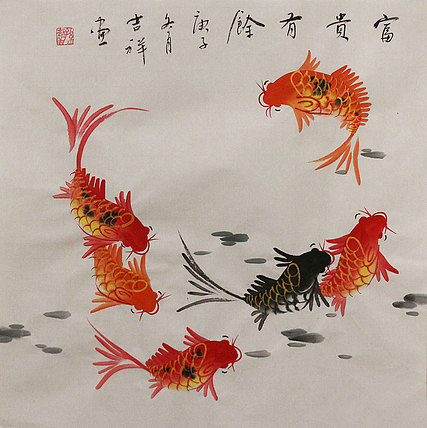 富贵有餘
庚子
冬月
吉祥
画